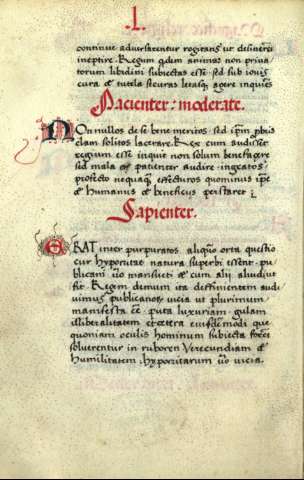 .L.
continue adversarentur rogitans ut desineret
ineptire. Regum quidem animas non priva
torum libidini subiectas esse sed sub iovis
cura et tutela securas letasque agere inquiens
Pacienter: moderate.
Non nullos de se bene meritos sed ipsum probris
clam solitos lacerare. Rex cum audisset
regium esse inquit non solum benefacere
sed mala et patienter audire ingratos
profecto nequaquam effecturos quominus ipse
et humanus et beneficus perstaret ;
Sapienter.
ERAT inter purpuratos aliquando orta questio
cur hypocritae natura superbi essent. pu
blicani vero mansueti et cum alii aliud
Regem demum ita deffinientem aud
ivimus publicanos vicia ut plurimum
manifesta esse puta luxuriam gulam
illiberalitatem et cetera eiusdem modi que
quoniam oculis hominum subiecta
solverentur in ruborem Verecundiam et
Humilitatem : hypocritarum vero vicia